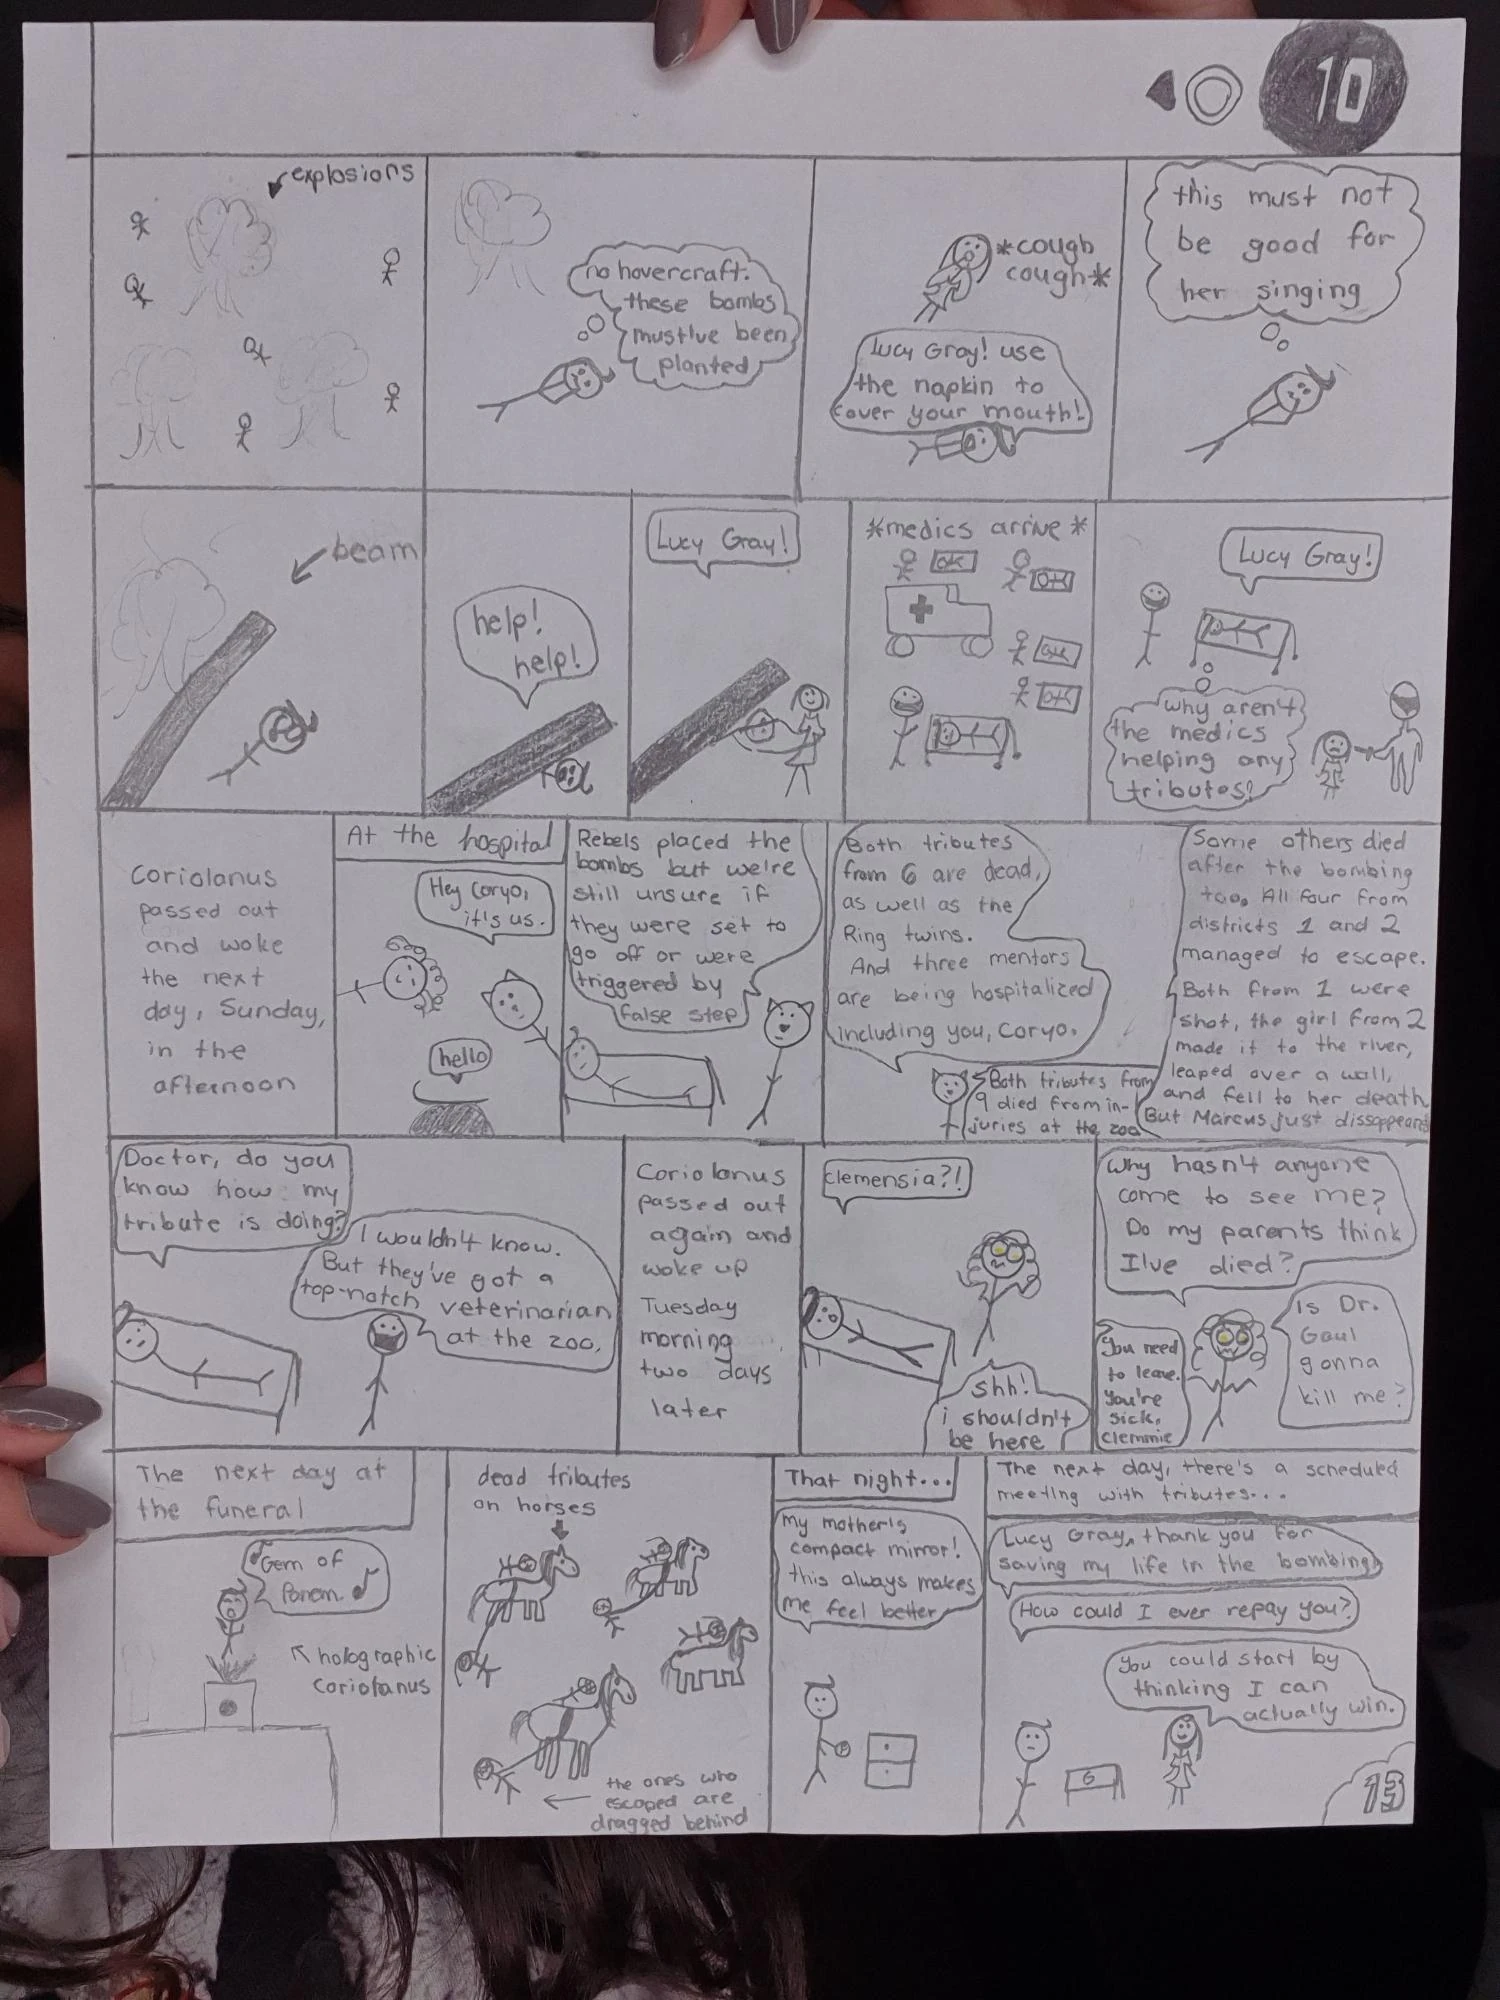 10
explosions
no hovercraft.
these bombs
must've been
planted
*cough
cough*
Lucy Gray! use
the napkin to
cover your mouth!
this must not
be good for
her singing
beam
help!
help!
Lucy Gray!
*medics arrive*
Lucy Gray!
why aren't
the medics
helping any
tributes?
Coriolanus
passed out
and woke
the next
day, Sunday,
in the
afternoon
At the hospital
Hey Coryo,
it's us.
hello
Rebels placed the
bombs but we're
still unsure if
they were set to
go off or were
triggered by
false step
Both tributes
from 6 are dead,
as well as the
Ring twins.
And three mentors
are being hospitalized
including you, Coryo.
Both tributes from
9 died from in-
juries at the zoo
Some others died
after the bombing
too. All four from
districts 1 and 2
managed to escape.
Both from 1 were
shot, the girl from 2
made it to the river,
leaped over a wall,
and fell to her death
But Marcus just dissappeard
Doctor, do you
know how my
tribute is doing?
I wouldn't know.
But they've got a
top-notch veterinarian
at the zoo.
Coriolanus
passed out
again and
woke up
Tuesday
morning
two days
later
Clemensia?!
shh!
i shouldn't
be here
Why hasn't anyone
come to see me?
Do my parents think
I've died?
You need
to leave.
You're
sick,
Clemmie
Is Dr.
Gaul
gonna
kill me?
The next day at
the funeral
Gem of
Panem.
holographic
Coriolanus
dead tributes
on horses
the ones who
escaped are
dragged behind
That night...
My mother's
compact mirror!
this always makes
me feel better
The next day, there's a scheduled
meeting with tributes...
Lucy Gray, thank you for
saving my life in the bombing
How could I ever repay you?
You could start by
thinking I can
actually win.
6
13